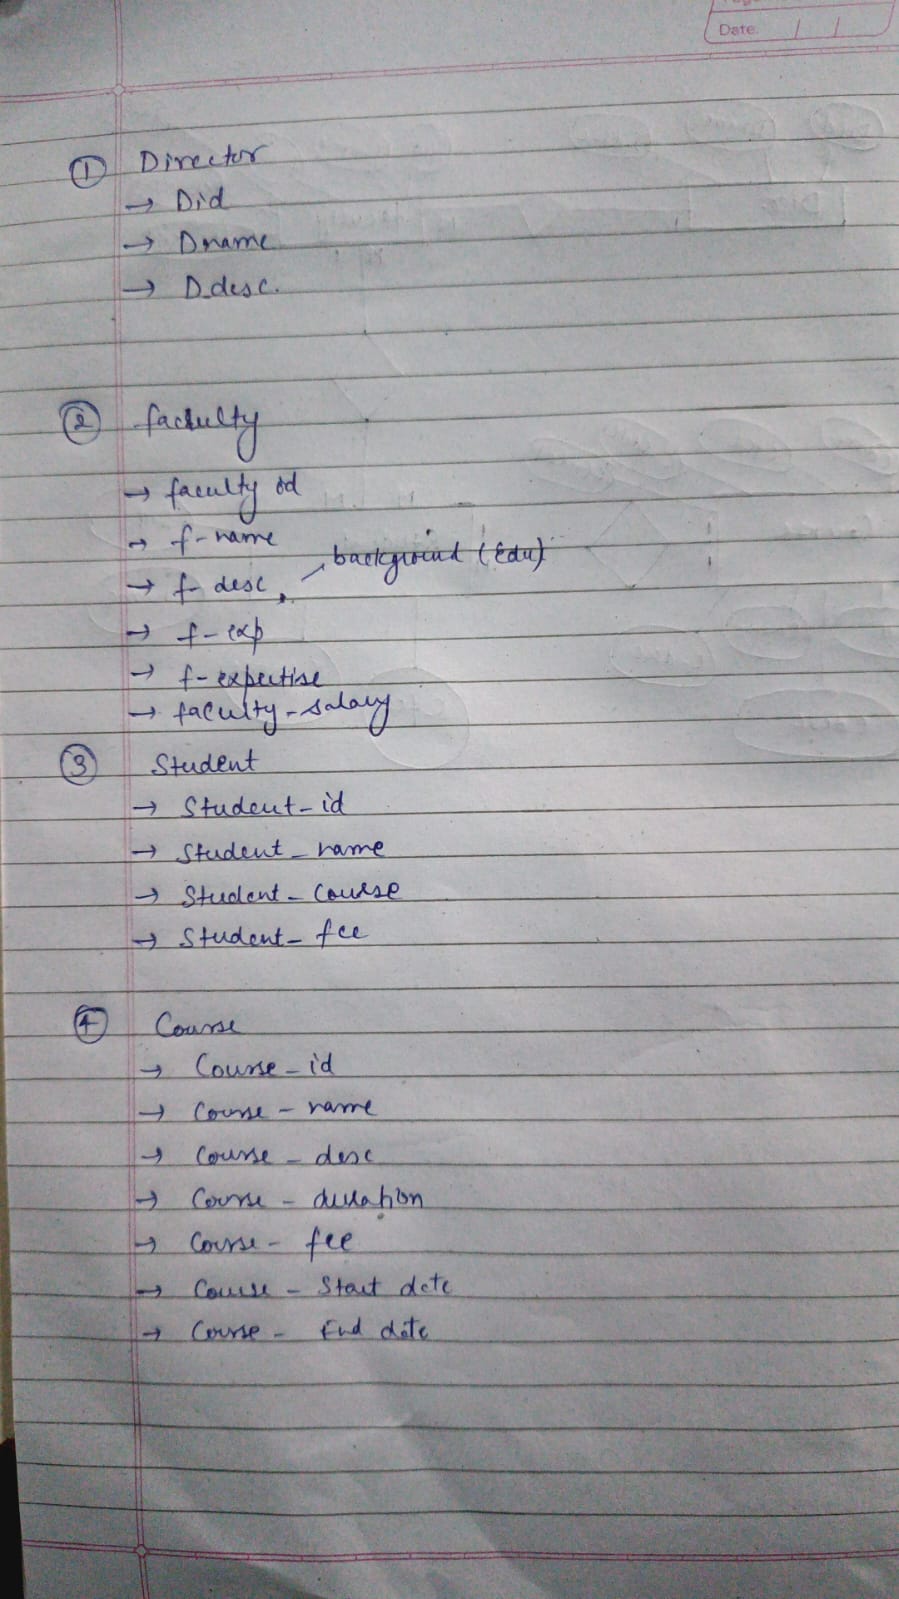 Date / /
① Director
→ Did
→ Dname
→ D_desc.
② faculty
→ faculty id
→ f-name
background (Edu)
→ f-desc
→ f-exp
→ f-expertise
→ faculty-salary
③ Student
→ Student-id
→ Student_name
→ Student-Course
→ Student-fee
④ Course
→ Course-id
→ Course-name
→ Course-desc
→ Course-duration
→ Course-fee
→ Course-Start date
→ Course-End date